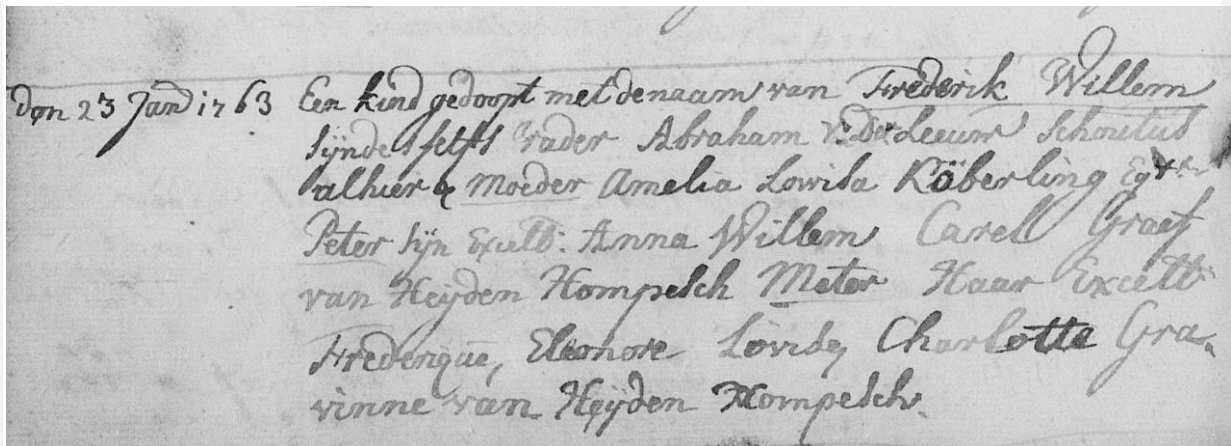 den 23 Jand 1763 Een kind gedoopt met de naam van Frederik Willem
sÿndes selfs vader Abraham v: De Leeuw Schoutus
alhier & Moeder Amelia Lowisa Köberling
Peter sÿn Excell: Anna Willem Carell Graef
van Heÿden Hompesch Meter Haar Excell:
Frederique, Eleonore Lovise, Charlotte Gra-
vinne van Heÿden Hompesch.